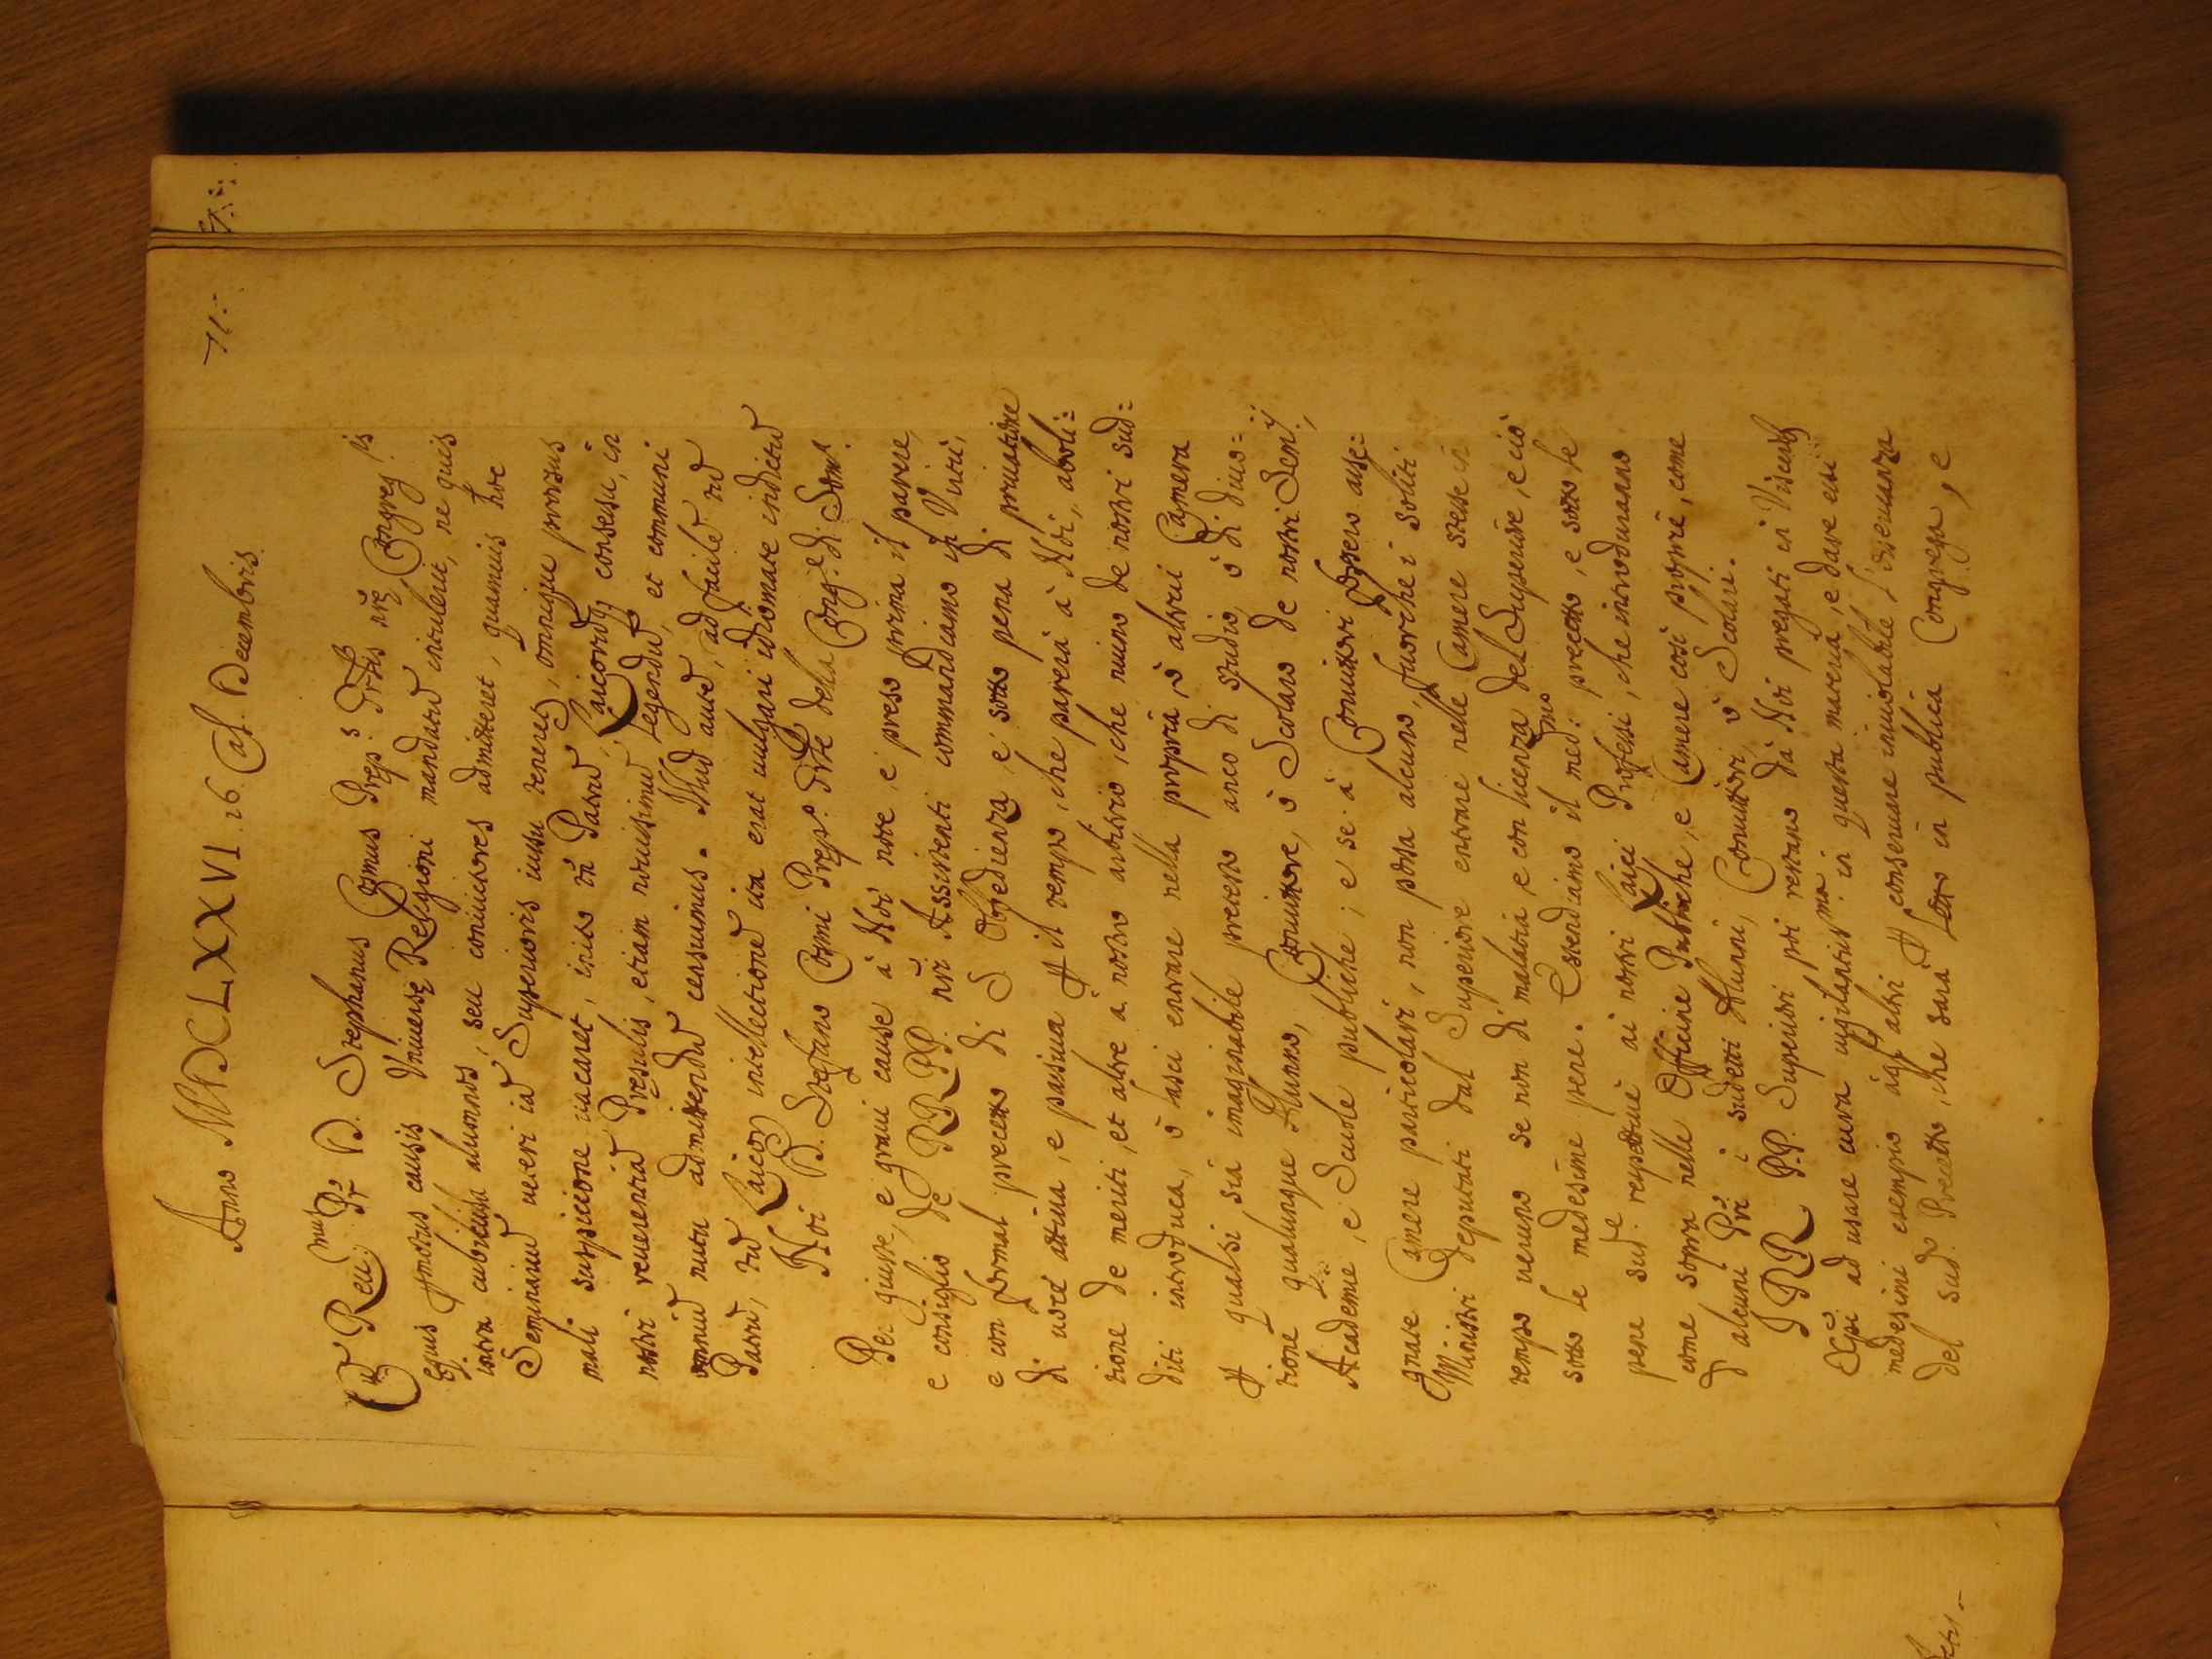 71.
Anno MDCLXXVI. 16. Cal. Decembris.
Cũ Reu.mus Pr̃ D. Stephanus Comus Prep.s Gñlis nr̃ę Congreg.is
equis permotus causis Vniuersę Religioni mandatũ intulerit, ne quis
intra cubicula alumnos, seu conuictores admitteret, quamuis hoc
Seminariũ ueteri iã Superioris iussu teneret, omnique prorsus
mali suspicione uacaret, inito tñ Patrũ, Laicorũq; consessu, in
nostri reuerentiã Pręsulis, etiam nouissimũ legendũ, et communi
omniũ nutu admittendũ censuimus. Illud autẽ, ad facilẽ tũ
Patrũ, tũ Laicor̃ intellectionẽ ita erat uulgari idiomate inditũ
Noi D. Stefano Comi Prep.o Gñle della Cong.e di Som.a
Per giuste, e graui cause à Noi note, e preso prima il parere,
e consiglio de RR. PP. nr̃i Assistenti commandiamo in Virtù,
e con formal precetto di S. Obbedienza, e sotto pena di priuatione
di uoce attiua, e passiua per il tempo, che parerà à Noi, aboli=
tione de meriti, et altre à nostro arbitrio, che niuno de nostri sud=
diti introduca, ò lasci entrare nella propria, ò altrui Camera
per qualsi sia imaginabile pretesto anco di studio, ò di diuo=
tione qualunque Alunno, Conuittore, ò Scolaro de nostri Semj,
Academie, e Scuole publiche; e se à Conuittori fossero asse=
gnate Camere particolari, non possa alcuno, fuorche i soliti
Ministri deputati dal Superiore entrare nelle Camere stesse in
tempo ueruno se non di malatia, e con licenza del Superiore, e ciò
sotto le medesime pene. Estendiamo il med.mo precetto, e sotto le
pene sud.e respettiuè ai nostri Laici Professi, che introduranno
come sopra nelle Officine Publiche, e Camere così proprie, come
d'alcuni Pr̃i i sudetti Alunni, Conuittori, ò Scolari.
I RR. PP. Superiori poi restano dà Noi pregati in Visceribus
Xp̃i ad usare cura uigilantis.ma in questa materia, e dare essi
medesimi esempio agl'altri per conseruare inuiolabile l'osseruanza
del sud.o Precetto, che sarà letto in publica Congrega, e